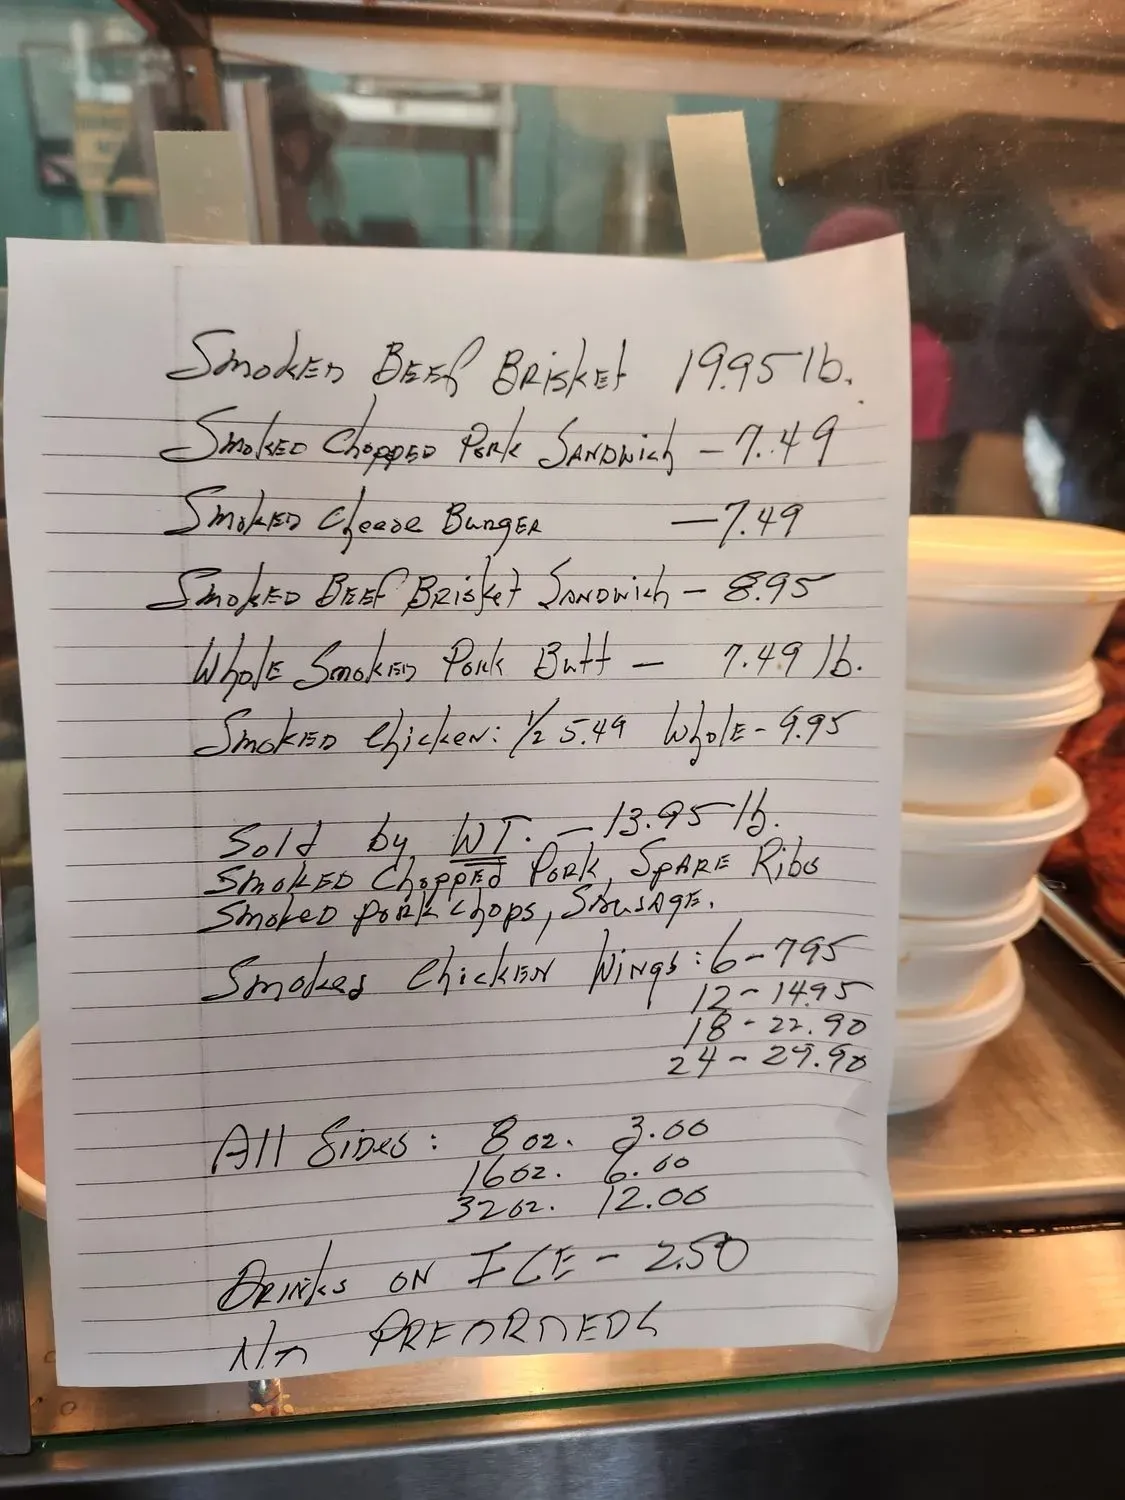 Smoked Beef Brisket 19.95 lb.
Smoked Chopped Pork Sandwich - 7.49
Smoked Cheese Burger - 7.49
Smoked Beef Brisket Sandwich - 8.95
Whole Smoked Pork Butt - 7.49 lb.
Smoked Chicken: 1/2 5.49 Whole - 9.95
Sold by WT. - 13.95 lb.
Smoked Chopped Pork, Spare Ribs
Smoked Pork Chops, Sausage.
Smoked Chicken Wings: 6 - 7.95
12 - 14.95
18 - 22.90
24 - 29.90
All Sides: 8 oz. 3.00
16 oz. 6.00
32 oz. 12.00
Drinks on ICE - 2.50
No PREORDERS